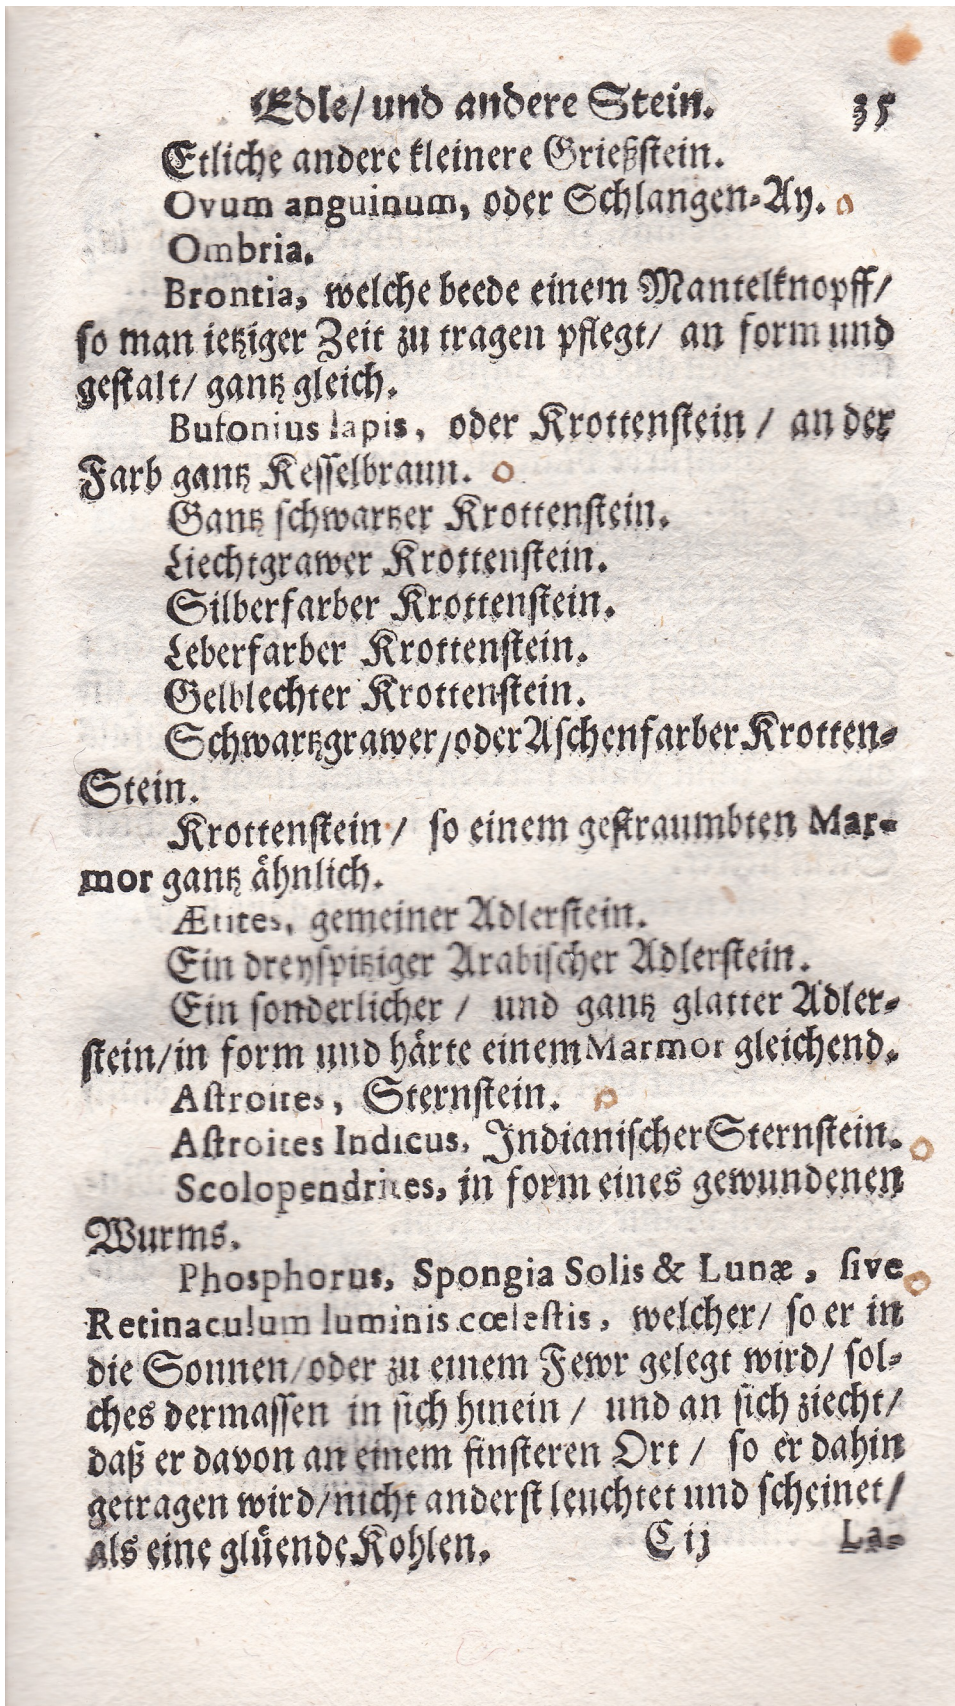 Edle/ und andere Stein. 35
Etliche andere kleinere Grießstein.
Ovum anguinum, oder Schlangen-Ay.
Ombria.
Brontia, welche beede einem Mantelknopff/
so man ietziger Zeit zu tragen pflegt/ an form und
gestalt/ gantz gleich.
Bufonius lapis, oder Krottenstein / an der
Farb gantz Kesselbraun.
Gantz schwartzer Krottenstein.
Liechtgrawer Krottenstein.
Silberfarber Krottenstein.
Leberfarber Krottenstein.
Gelblechter Krottenstein.
Schwartzgrawer/oder Aschenfarber Krotten-
Stein.
Krottenstein / so einem gestraumbten Mar-
mor gantz åhnlich.
Ætites, gemeiner Adlerstein.
Ein dreyspitziger Arabischer Adlerstein.
Ein sonderlicher / und gantz glatter Adler-
stein/in form und hårte einem Marmor gleichend.
Astroites, Sternstein.
Astroites Indicus, Indianischer Sternstein.
Scolopendrites, in form eines gewundenen
Wurms.
Phosphorus, Spongia Solis & Lunæ, sive
Retinaculum luminis cœlestis, welcher/ so er in
die Sonnen/oder zu einem Fewr gelegt wird/ sol-
ches dermassen in sich hinein / und an sich ziecht/
daß er davon an einem finsteren Ort / so er dahin
getragen wird/nicht anderst leuchtet und scheinet/
als eine glůende Kohlen. C ij La-